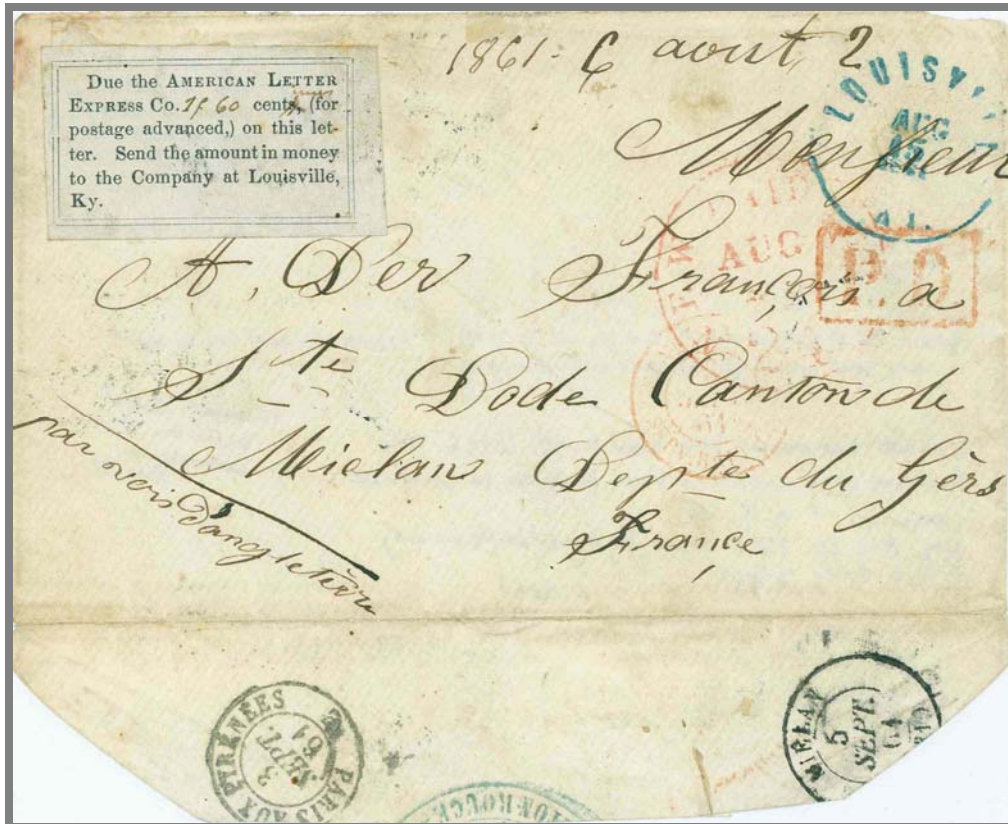 Due the AMERICAN LETTER
EXPRESS Co. 1f 60 cents, (for
postage advanced,) on this let-
ter. Send the amount in money
to the Company at Louisville,
Ky.
1861. 6 aout, 2
LOUISV
AUG
Monsieur
AID
AUG
P.D
A, Der François a
Ste Dode Canton de
Mielan Depte du Gèrs
France
par vois D'angleterre
PARIS AUX PYRÉNÉES
3
SEPT.
61
MIELAN
5
SEPT.
61
TON-ROUGE